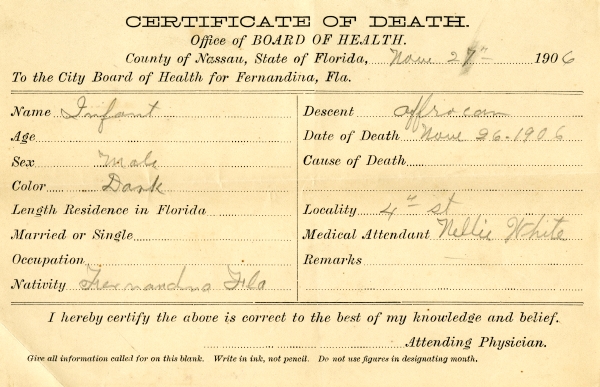 CERTIFICATE OF DEATH.
Office of BOARD OF HEALTH.
County of Nassau, State of Florida, Nov 27" 1906
To the City Board of Health for Fernandina, Fla.
Name Infant
Age
Sex Male
Color Dark
Length Residence in Florida
Married or Single
Occupation
Nativity Fernandina Fla
Descent affrocan
Date of Death Nov 26-1906
Cause of Death
Locality 4" st
Medical Attendant Nellie White
Remarks
I hereby certify the above is correct to the best of my knowledge and belief.
Attending Physician.
Give all information called for on this blank. Write in ink, not pencil. Do not use figures in designating month.